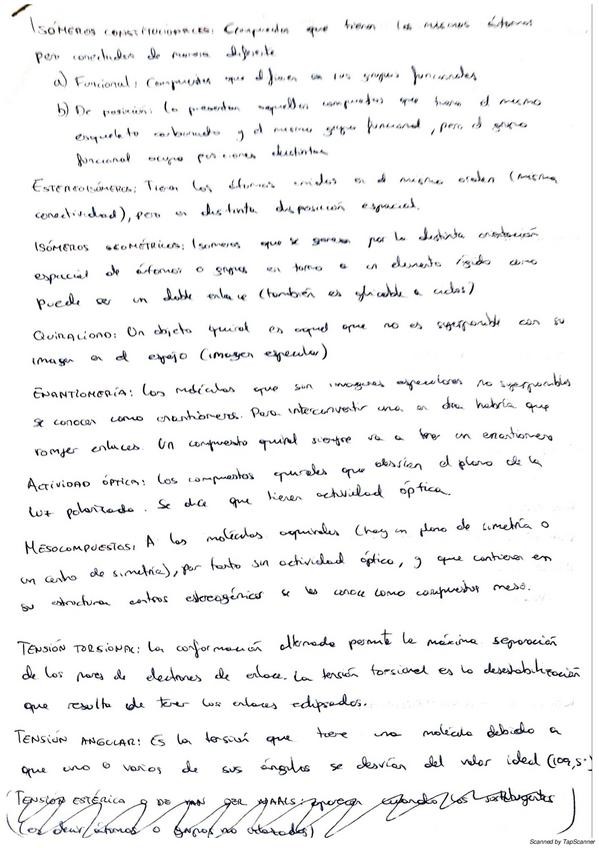 ISÓMEROS CONSTITUCIONALES: Compuestos que tienen los mismos átomos
pero conectados de manera diferente
a) Funcional: Compuestos que difieren en sus grupos funcionales
b) De posición: Lo presentan aquellos compuestos que tienen el mismo
esqueleto carbonado y el mismo grupo funcional, pero el grupo
funcional ocupa posiciones distintas
ESTEREOISÓMEROS: Tienen los átomos unidos en el mismo orden (misma
conectividad), pero en distinta disposición espacial.
ISÓMEROS GEOMÉTRICOS: Isómeros que se generan por la distinta orientación
espacial de átomos o grupos en torno a un elemento rígido como
puede ser un doble enlace (también es aplicable a ciclos)
QUIRALIDAD: Un objeto quiral es aquel que no es superponible con su
imagen en el espejo (imagen especular)
ENANTIOMERÍA: Las moléculas que son imágenes especulares no superponibles
se conocen como enantiómeros. Para interconvertir una en otra habría que
romper enlaces. Un compuesto quiral siempre va a tener un enantiómero
ACTIVIDAD ÓPTICA: Los compuestos quirales que desvían el plano de la
luz polarizada. Se dice que tienen actividad óptica.
MESOCOMPUESTOS: A las moléculas aquirales (hay un plano de simetría o
un centro de simetría), por tanto sin actividad óptica, y que contienen en
su estructura centros estereogénicos se les conoce como compuestos meso.
TENSIÓN TORSIONAL: La conformación alternada permite la máxima separación
de los pares de electrones de enlace. La tensión torsional es la desestabilización
que resulta de tener los enlaces eclipsados.
TENSIÓN ANGULAR: Es la tensión que tiene una molécula debido a
que uno o varios de sus ángulos se desvían del valor ideal (109,5°)
TENSIÓN ESTÉRICA o DE VAN DER WAALS: aparece cuando los sustituyentes
(es decir átomos o grupos no enlazados)
Scanned by TapScanner